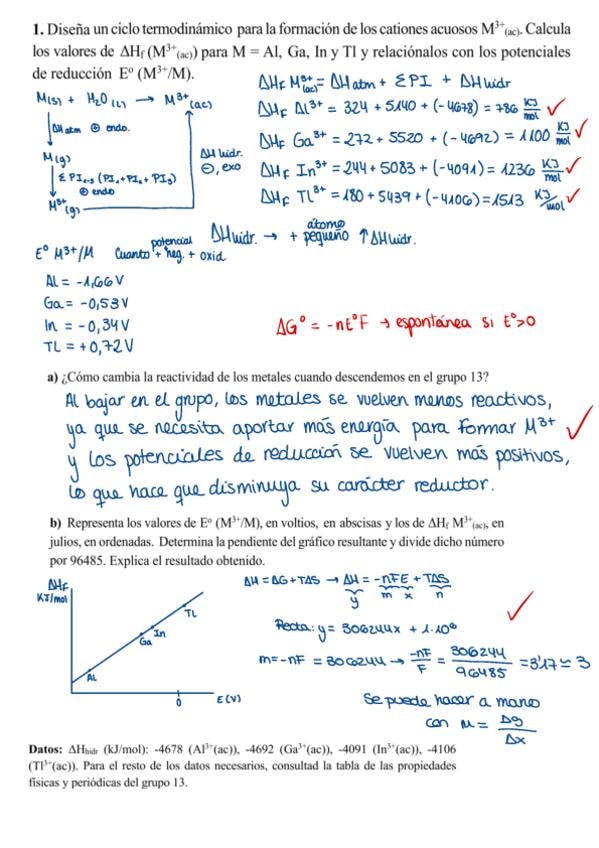 1. Diseña un ciclo termodinámico para la formación de los cationes acuosos M³⁺(ac). Calcula
los valores de ΔHf (M³⁺(ac)) para M = Al, Ga, In y Tl y relaciónalos con los potenciales
de reducción Eº (M³⁺/M).
ΔHf M³⁺(ac) = ΔHatm + ΣPI + ΔHhidr
M(s) + H₂O (L) → M³⁺(ac)
ΔHatm ⊕ endo.
M(g)
ΣPI₁₋₃ (PI₁+PI₂+PI₃)
⊕ endo
M³⁺(g)
ΔHhidr.
⊖, exo
ΔHf Al³⁺ = 324 + 5140 + (-4678) = 786 KJ/mol ✓
ΔHf Ga³⁺ = 272 + 5520 + (-4692) = 1100 KJ/mol ✓
ΔHf In³⁺ = 244 + 5083 + (-4091) = 1236 KJ/mol ✓
ΔHf TL³⁺ = 180 + 5439 + (-4106) = 1513 KJ/mol ✓
ΔHhidr. → + átomo pequeño ↑ΔHhidr.
E° M³⁺/M Cuanto potencial + neg. + oxid
AL = -1,66 V
Ga = -0,53 V
In = -0,34 V
TL = +0,72 V
ΔG° = -nE°F → espontánea si E°>0
a) ¿Cómo cambia la reactividad de los metales cuando descendemos en el grupo 13?
Al bajar en el grupo, los metales se vuelven menos reactivos,
ya que se necesita aportar más energía para formar M³⁺ ✓
y los potenciales de reducción se vuelven más positivos,
lo que hace que disminuya su carácter reductor.
b) Representa los valores de Eº (M³⁺/M), en voltios, en abscisas y los de ΔHf M³⁺(ac), en
julios, en ordenadas. Determina la pendiente del gráfico resultante y divide dicho número
por 96485. Explica el resultado obtenido.
ΔHf
KJ/mol
AL
Ga
In
TL
0
E(V)
ΔH = ΔG + TΔS → ΔH = -nFE + TΔS
y m x n
Recta: y = 306244x + 1·10⁶ ✓
m = -nF = 306244 → -nF/F = 306244/96485 = 3'17 ≃ 3
Se puede hacer a mano
con m = Δy/Δx
Datos: ΔHhidr (kJ/mol): -4678 (Al³⁺(ac)), -4692 (Ga³⁺(ac)), -4091 (In³⁺(ac)), -4106
(Tl³⁺(ac)). Para el resto de los datos necesarios, consultad la tabla de las propiedades
físicas y periódicas del grupo 13.